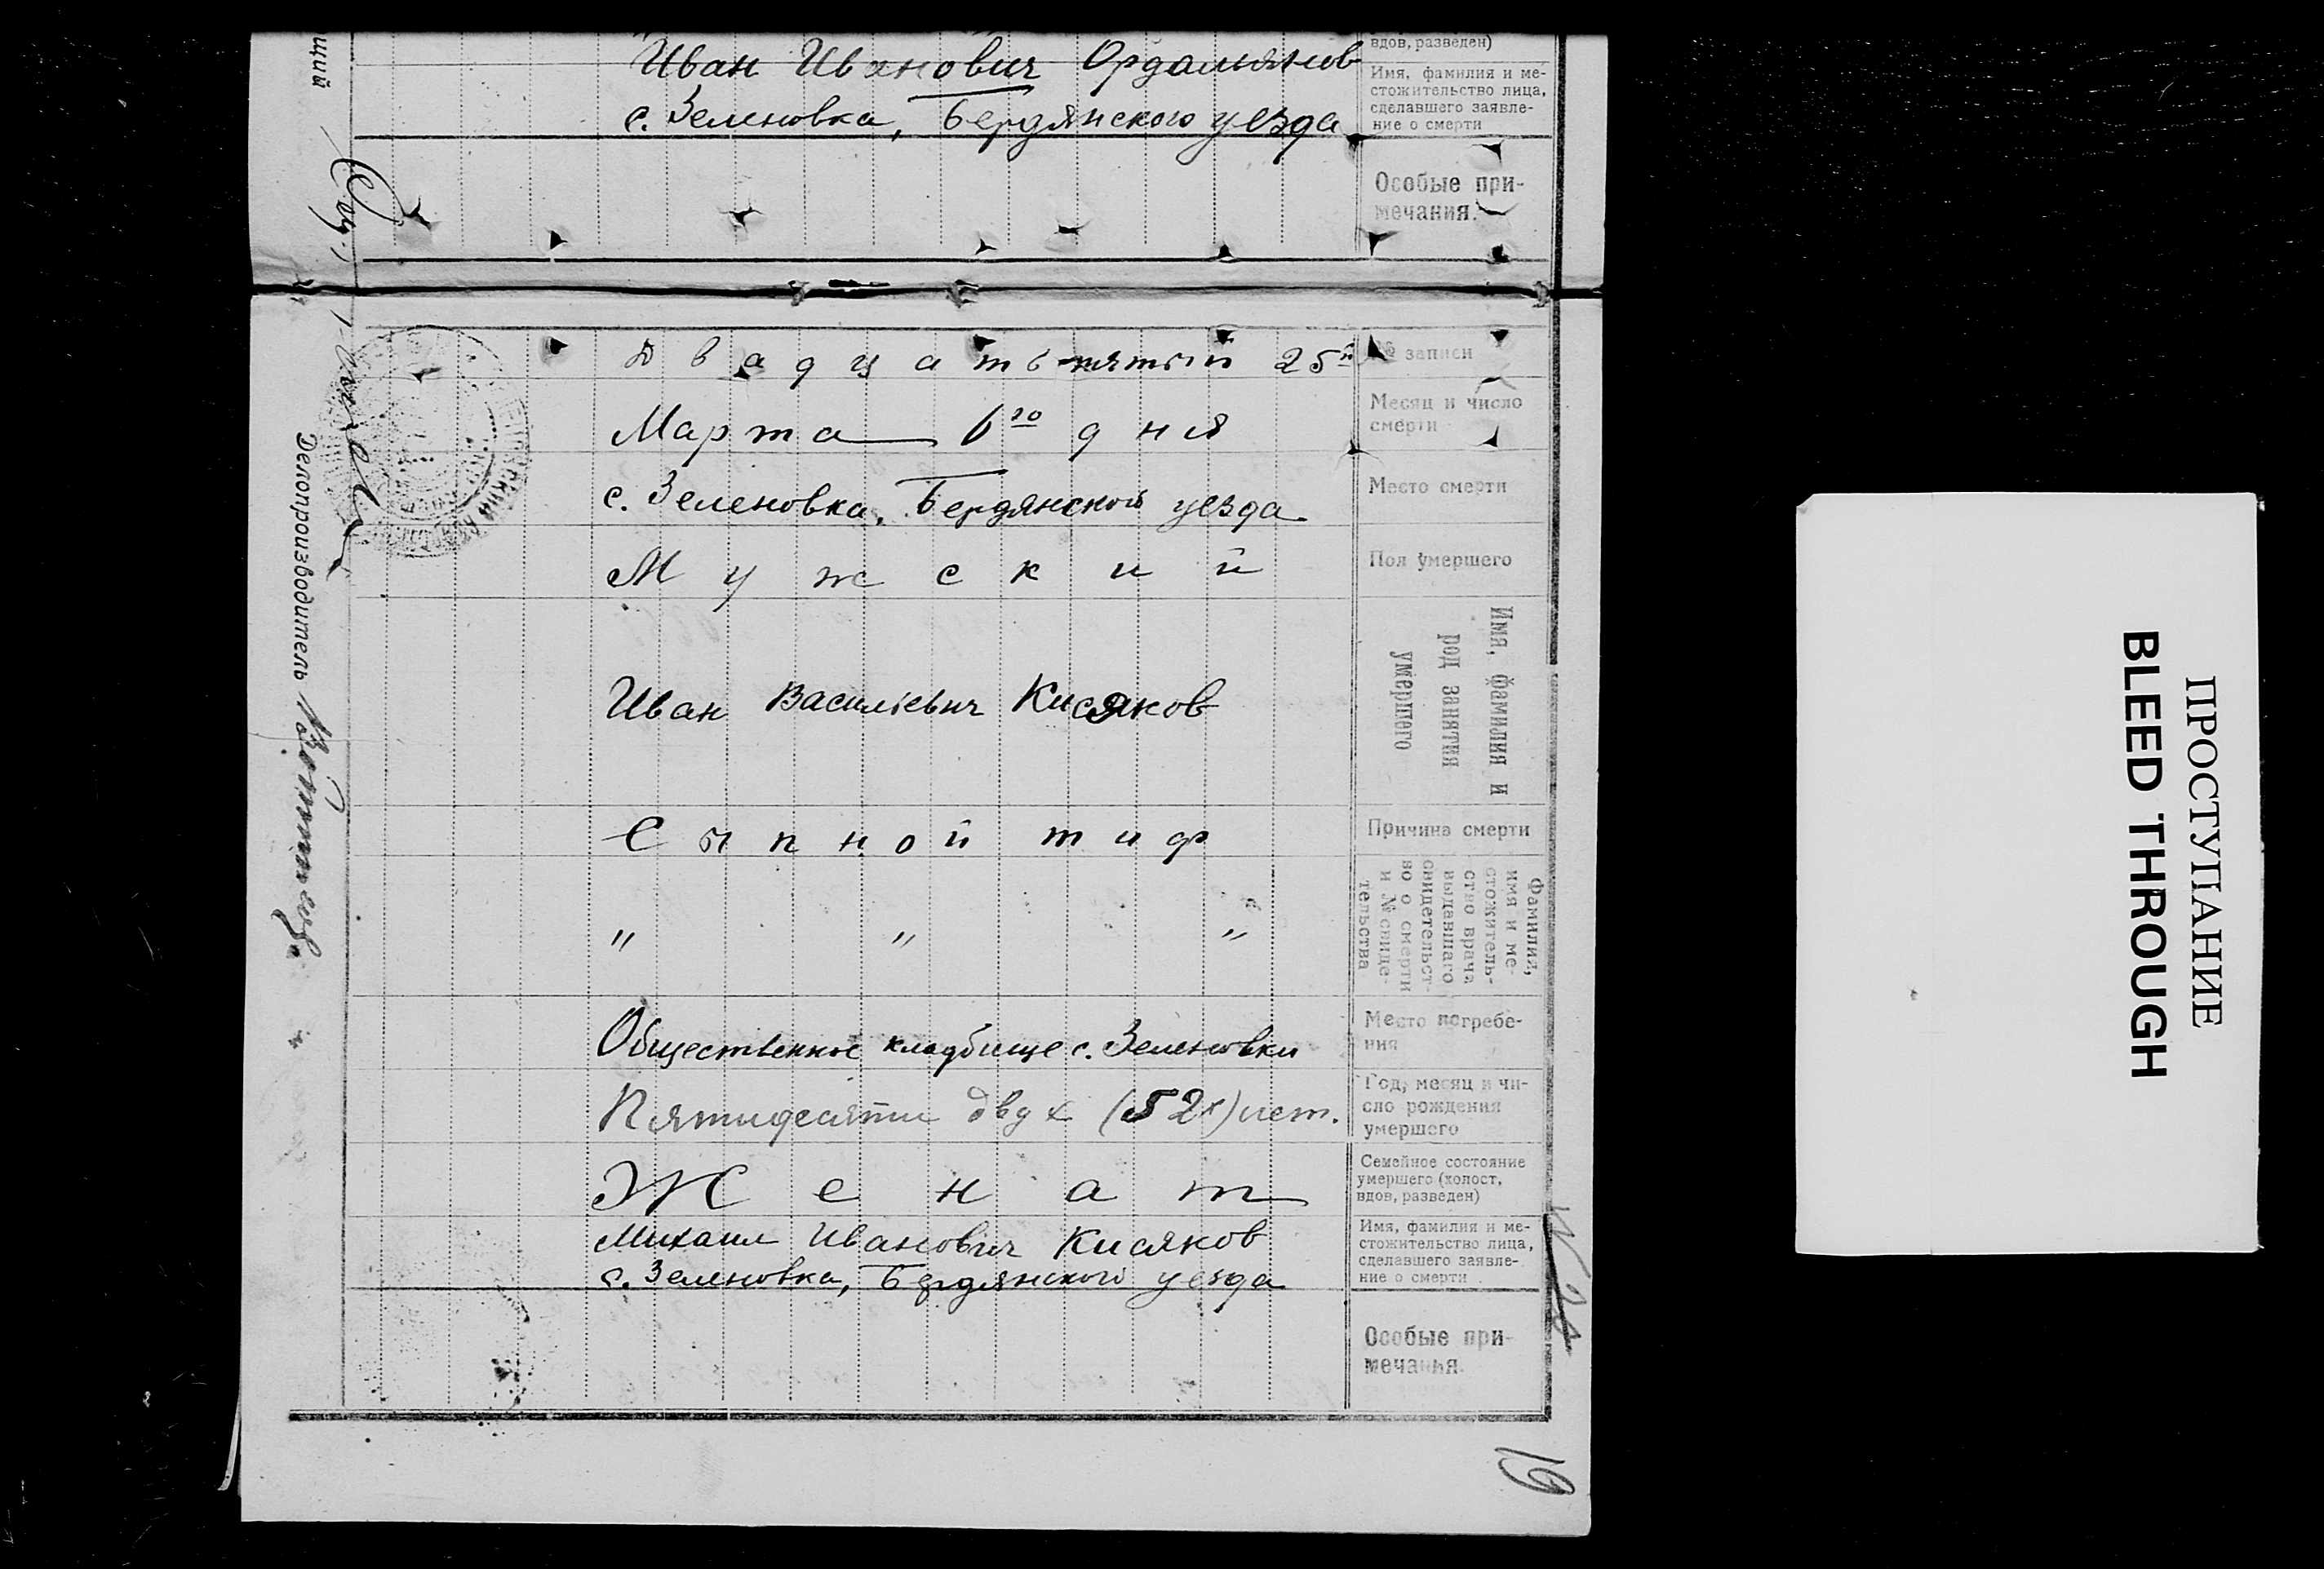 вдов, разведен)
Иван Иванович
Имя, фамилия и ме-
стожительство лица,
сделавшего заявле-
ние о смерти
с. Зеленовка, Бердянского уезда
Особые при-
мечания.
Двадцать-пятый 25й
№ записи
Марта 6го дня
Месяц и число
смерти
с. Зеленовка, Бердянской уезда
Место смерти
Мужский
Пол умершего
Иван Василіевич Кисяков
Имя, фамилия и
род занятия
умершего
Сыпной тиф
Причина смерти
" " "
Фамилия,
имя и ме-
стожитель-
ство врача
выдавшаго
свидетельст-
во о смерти
и № свиде-
тельства
Общественное кладбище с. Зеленовки
Место погребе-
ния
Пятидесяти двух (52х) лет.
Год, месяц и чи-
сло рождения
умершего
Женат
Семейное состояние
умершего (холост,
вдов, разведен)
Михаил Иванович Кисяков
с. Зеленовка, Бердянского уезда
Имя, фамилия и ме-
стожительство лица,
сделавшего заявле-
ние о смерти
Особые при-
мечанья.
Делопроизводитель
19
ПРОСТУПАНИЕ
BLEED THROUGH